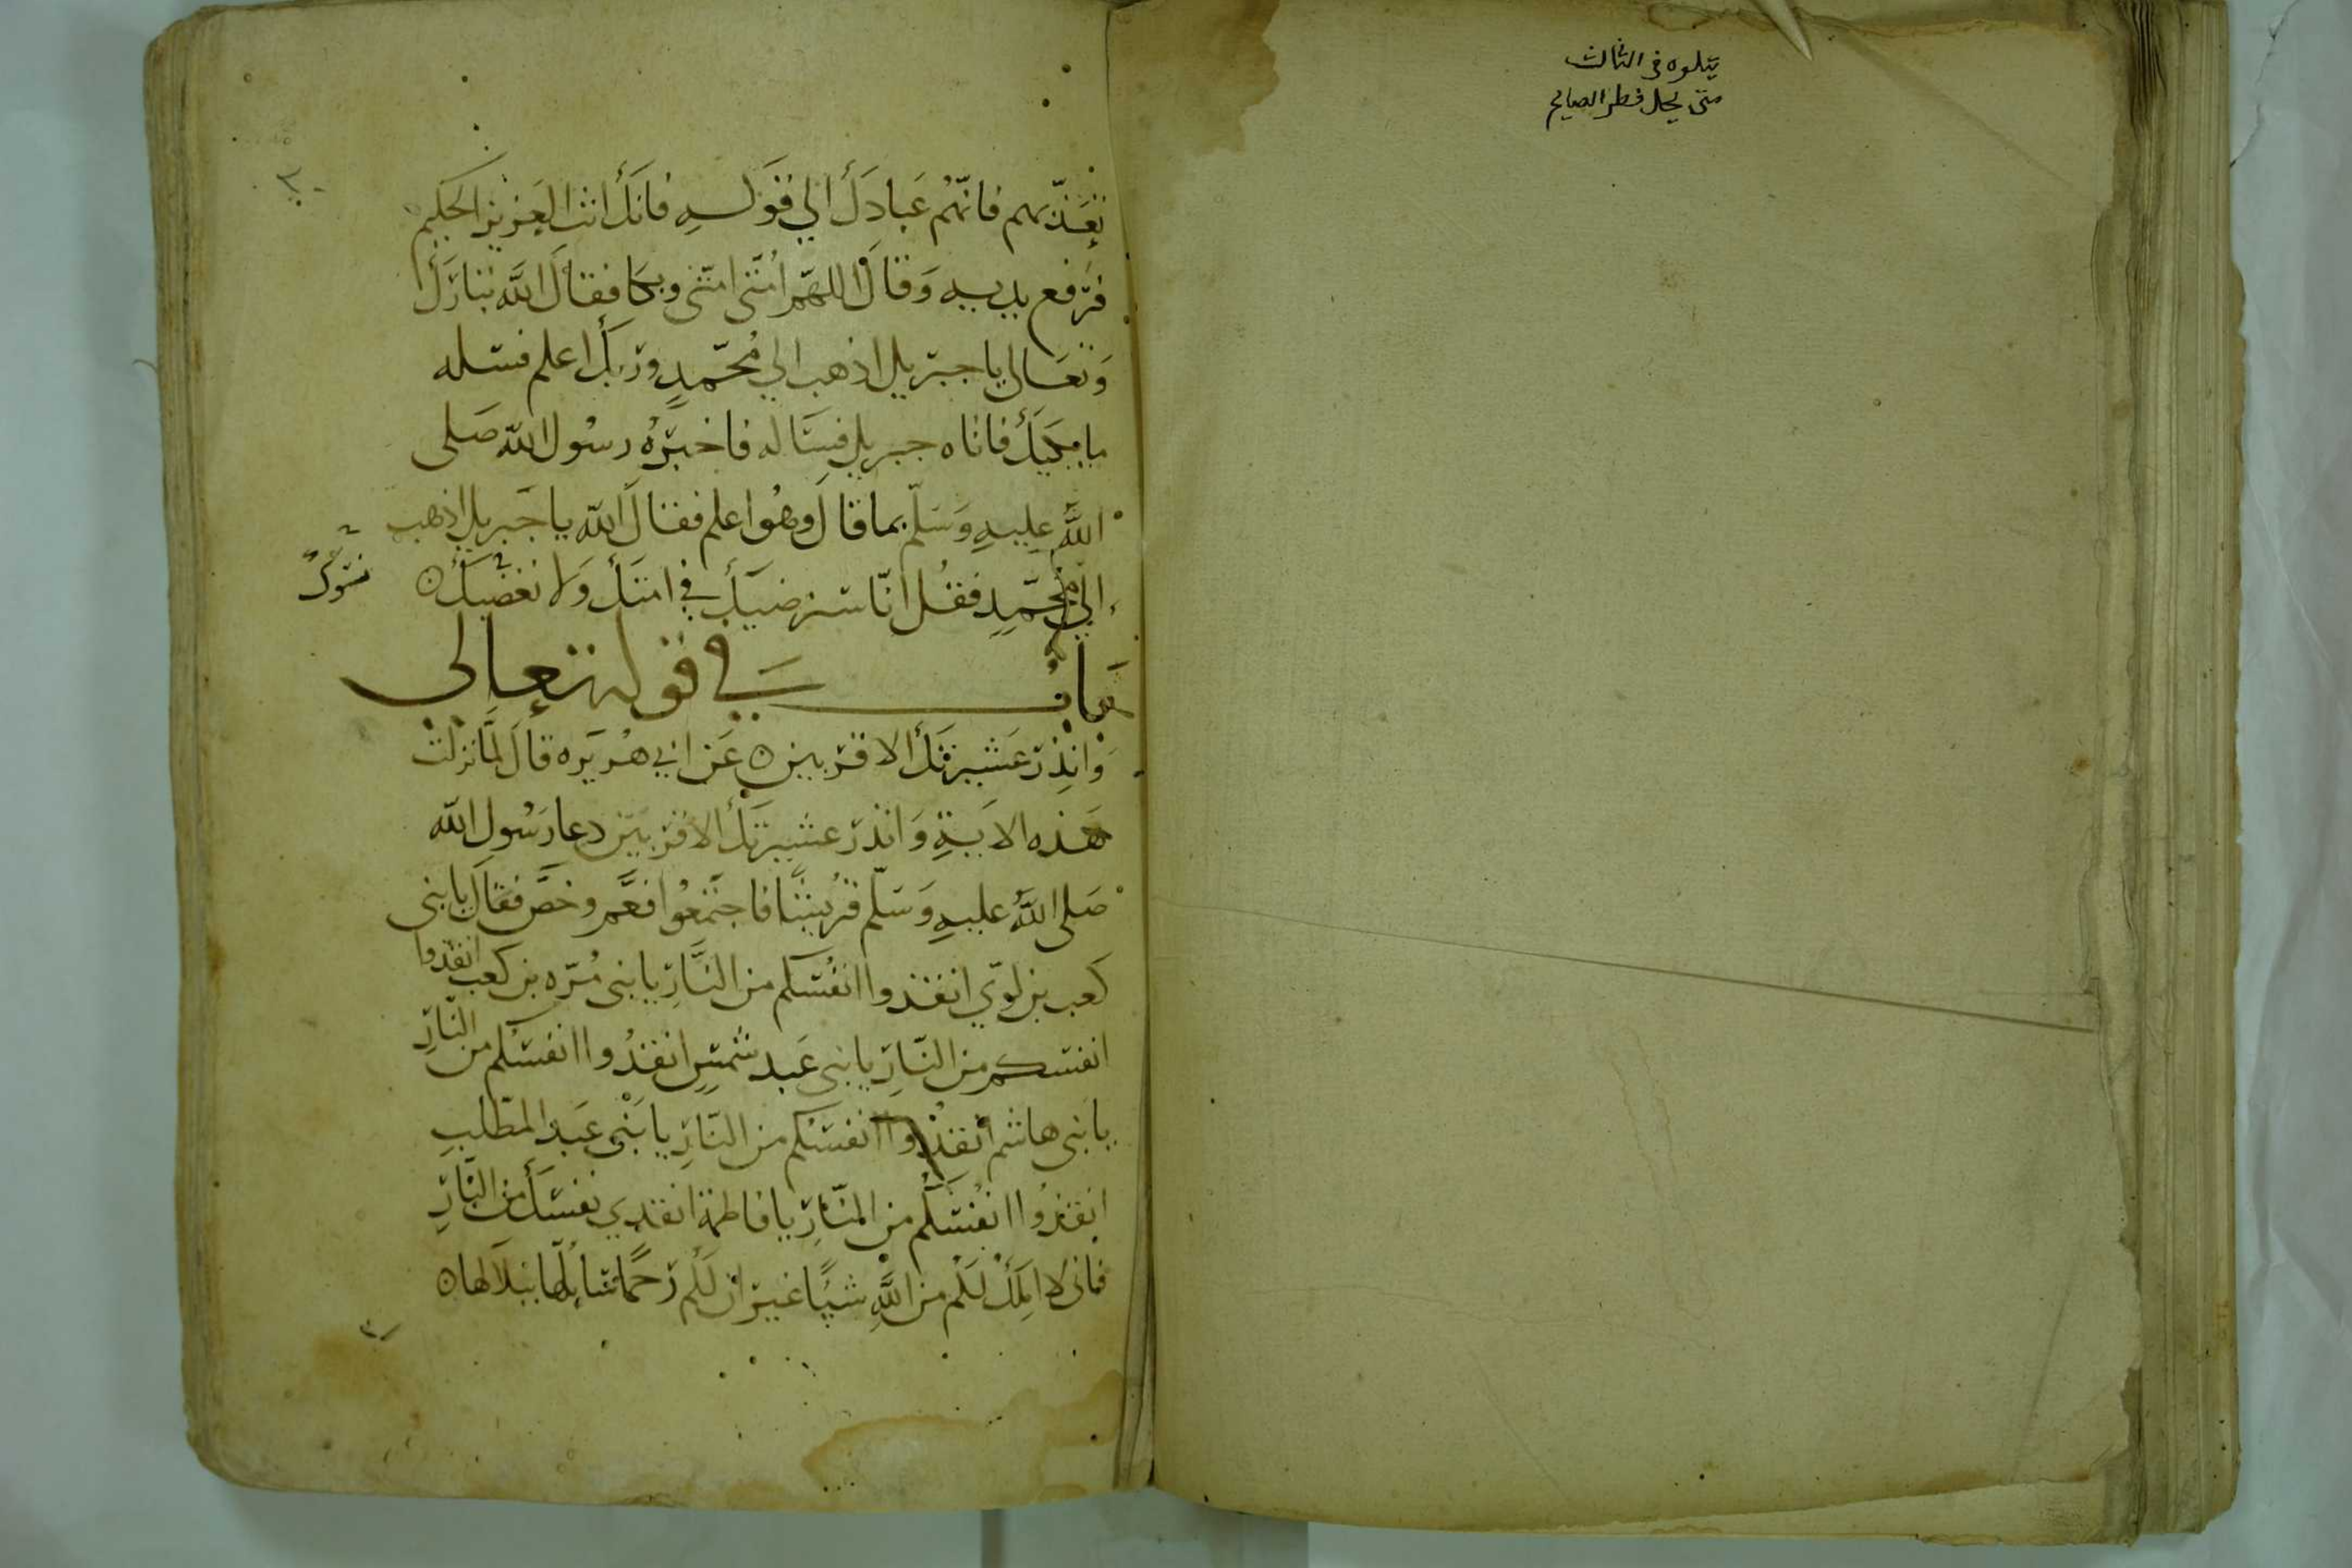 يتلوه في الثالث
متى يحل فطر الصايم
٣٠
تعذبهم فانّهُم عَبادَك الي قَولهِ فانكَ انت العَزيز الحَكيم
فرَفع يديه وَقالَ اللهمّ امتى امتى وبكا فقالَ اللَّه تبارَك
وَتعَالى يا جبريل اذهب الي مُحمّدٍ وربكَ اعلم فسله
ما يبكيكَ فاتاه جبريل فسَاله فاخبَرهُ رسُول اللّه صَلى
اللَّه عليهِ وَسَلّم بما قالَ وهُو اعلم فقالَ اللّه يا جَبريل اذهب
الي مُحمّدٍ فقُل انّا سنرضيكَ في امتكَ وَلا نغضبكَ ه
نسوك
بَابٌ في قوله تعالى
وَانذِر عَشيرتكَ الاقربين ه عَن ابي هُريَره قالَ لمَّا نزلت
هَذه الايَةِ وَانذر عشيرتكَ الاقربين دعا رَسُول اللّه
صَلى اللَّه عليهِ وَسَلّم قرُيشًا فاجتَمعُوا فعَّم وخصَّ فقالَ يا بنى
كعب بن لوّي انقذوا انفُسَكم من النَّارِ يا بنى مُرّه بن كعب انقذوا
انفسكم من النّارِ يا بنى عَبد شمسٍ انقذُوا انفسكم من النّارِ
يا بَنى هاشم انقذُوا انفسَكم من النّارِ يا بَنْى عَبد المطّلبِ
انقذُوا انفُسَكُم من النّارِ يا فاطمة انقذي نفسَكَ من النّارِ
فانى لا املِكُ لكُم من اللَّهِ شيًا غير ان لكُم رَحمًا سَابُلّها ببلالها ه